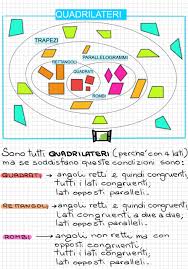 QUADRILATERI
TRAPEZI
PARALLELOGRAMMI
RETTANGOLI
QUADRATI
ROMBI
Sono tutti QUADRILATERI (perche' con 4 lati)
ma se soddisfano queste condizioni sono:
QUADRATI → angoli retti e quindi congruenti,
tutti i lati congruenti,
lati opposti paralleli.
RETTANGOLI → angoli retti e quindi congruenti,
lati congruenti a due a due,
lati opposti paralleli.
ROMBI → angoli non retti ma con
opposti congruenti,
tutti i lati congruenti,
lati opposti paralleli.